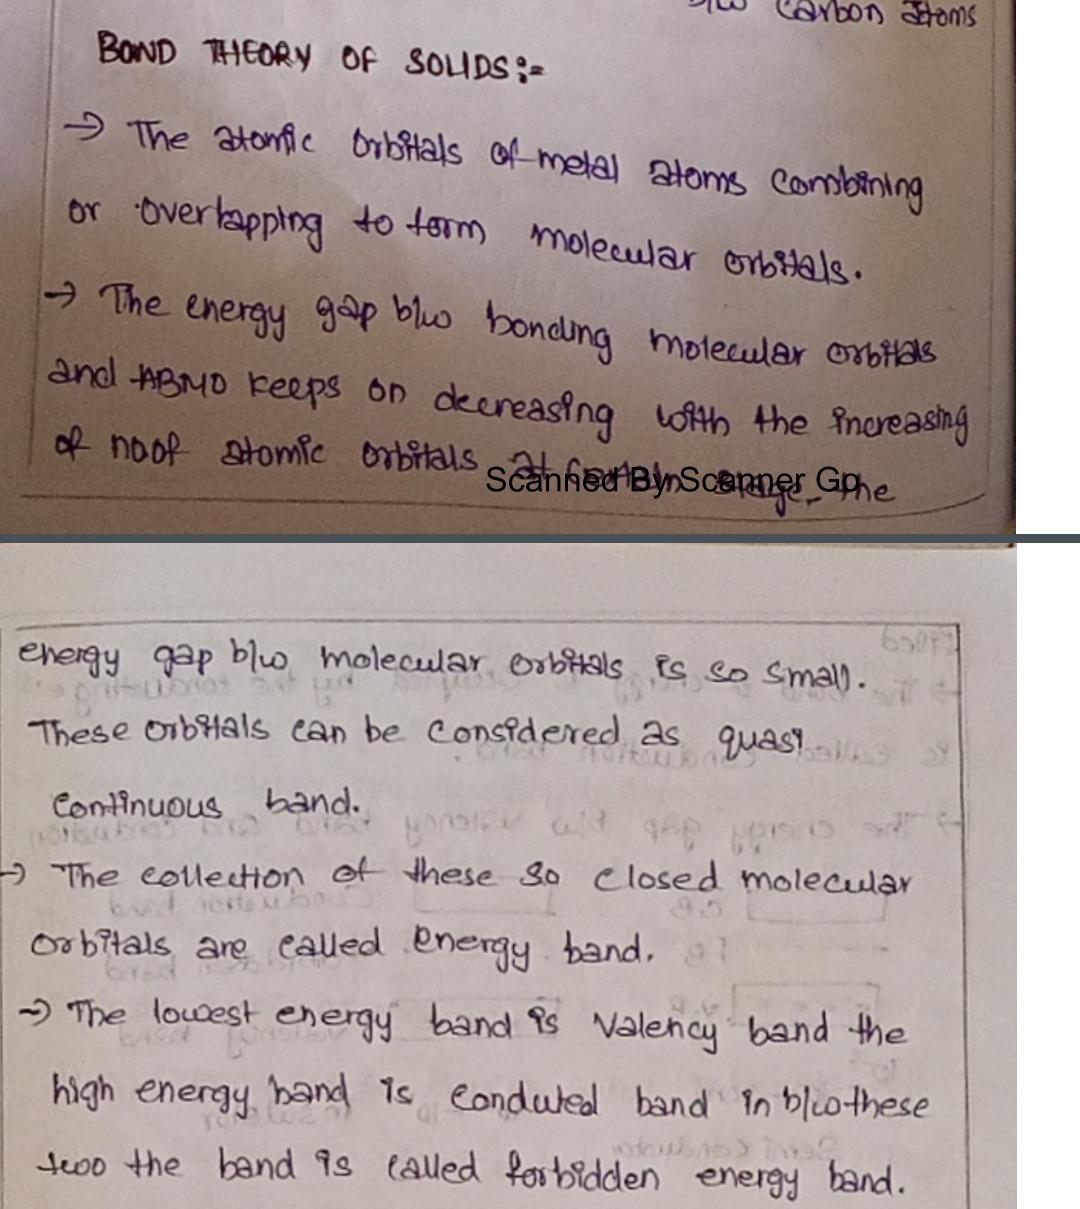 b/w Carbon atoms
BOND THEORY OF SOLIDS:-
→ The atomic orbitals of metal atoms combining
or overlapping to form molecular orbitals.
→ The energy gap b/w bonding molecular orbitals
and ABMO keeps on decreasing with the increasing
of no of atomic orbitals at certain stage, the
Scanned By Scanner Go
energy gap b/w molecular orbitals is so small.
These orbitals can be considered as quasi
continuous band.
→ The collection of these so closed molecular
orbitals are called energy band.
→ The lowest energy band is valency band the
high energy band is conduted band in b/w these
two the band is called forbidden energy band.